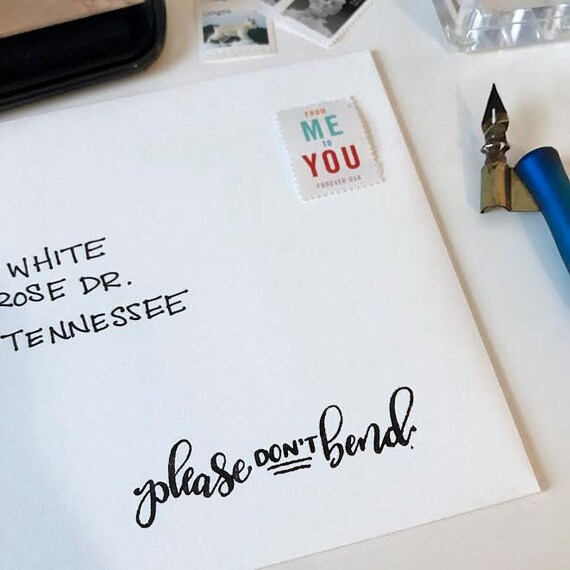 FROM
ME
TO
YOU
FOREVER•USA
WHITE
ROSE DR.
TENNESSEE
please DON'T bend.